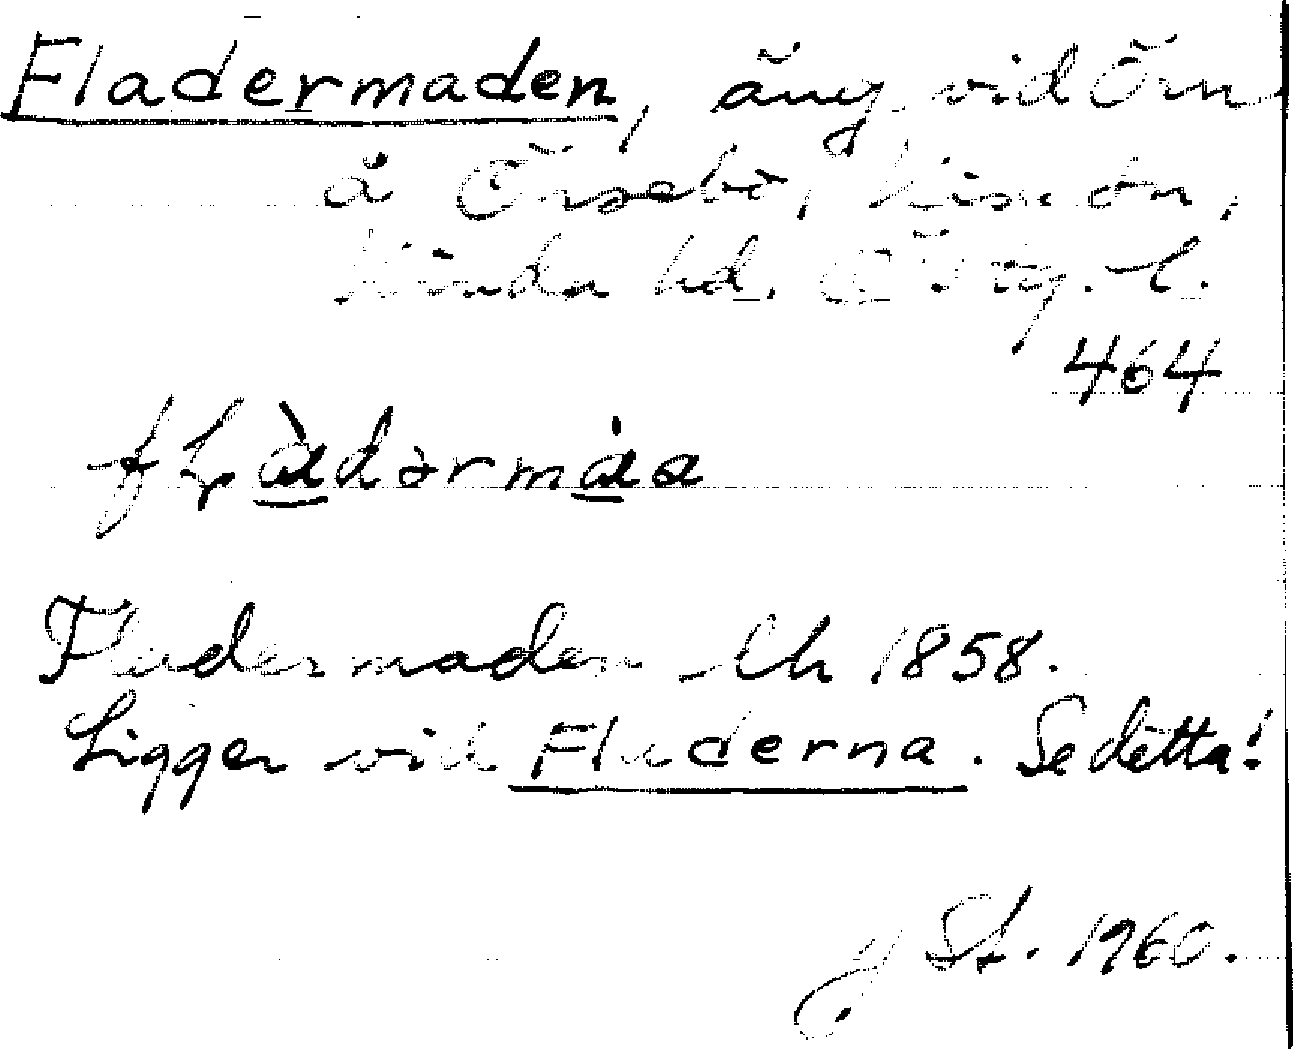 Fladermaden, äng vid Örn
å Örsebo, Kisa sn,
Kinda hd. Östg. l.
464
flàdərmàa
Fludermaden Uh 1858.
Ligger vid Fluderna. Se detta!
St. 1960.